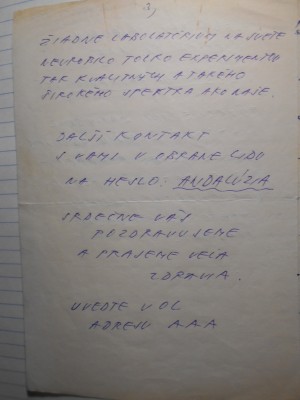 3,
ŽIADNE LABORATÓRIUM NA SVETE
NEUROBILO TOĽKO EXPERIMENTOV
TAK KVALITNÝCH A TAKÉHO
ŠIROKÉHO SPEKTRA AKO NAŠE.
ĎALŠÍ KONTAKT
S NAMI V OBRANE ĽUDU
NA HESLO: ANDALÚZIA
SRDEČNE VÁS
POZDRAVUJEME
A PRAJEME VEĽA
ZDRAVIA.
UVEĎTE V OĽ
ADRESU A.A.A